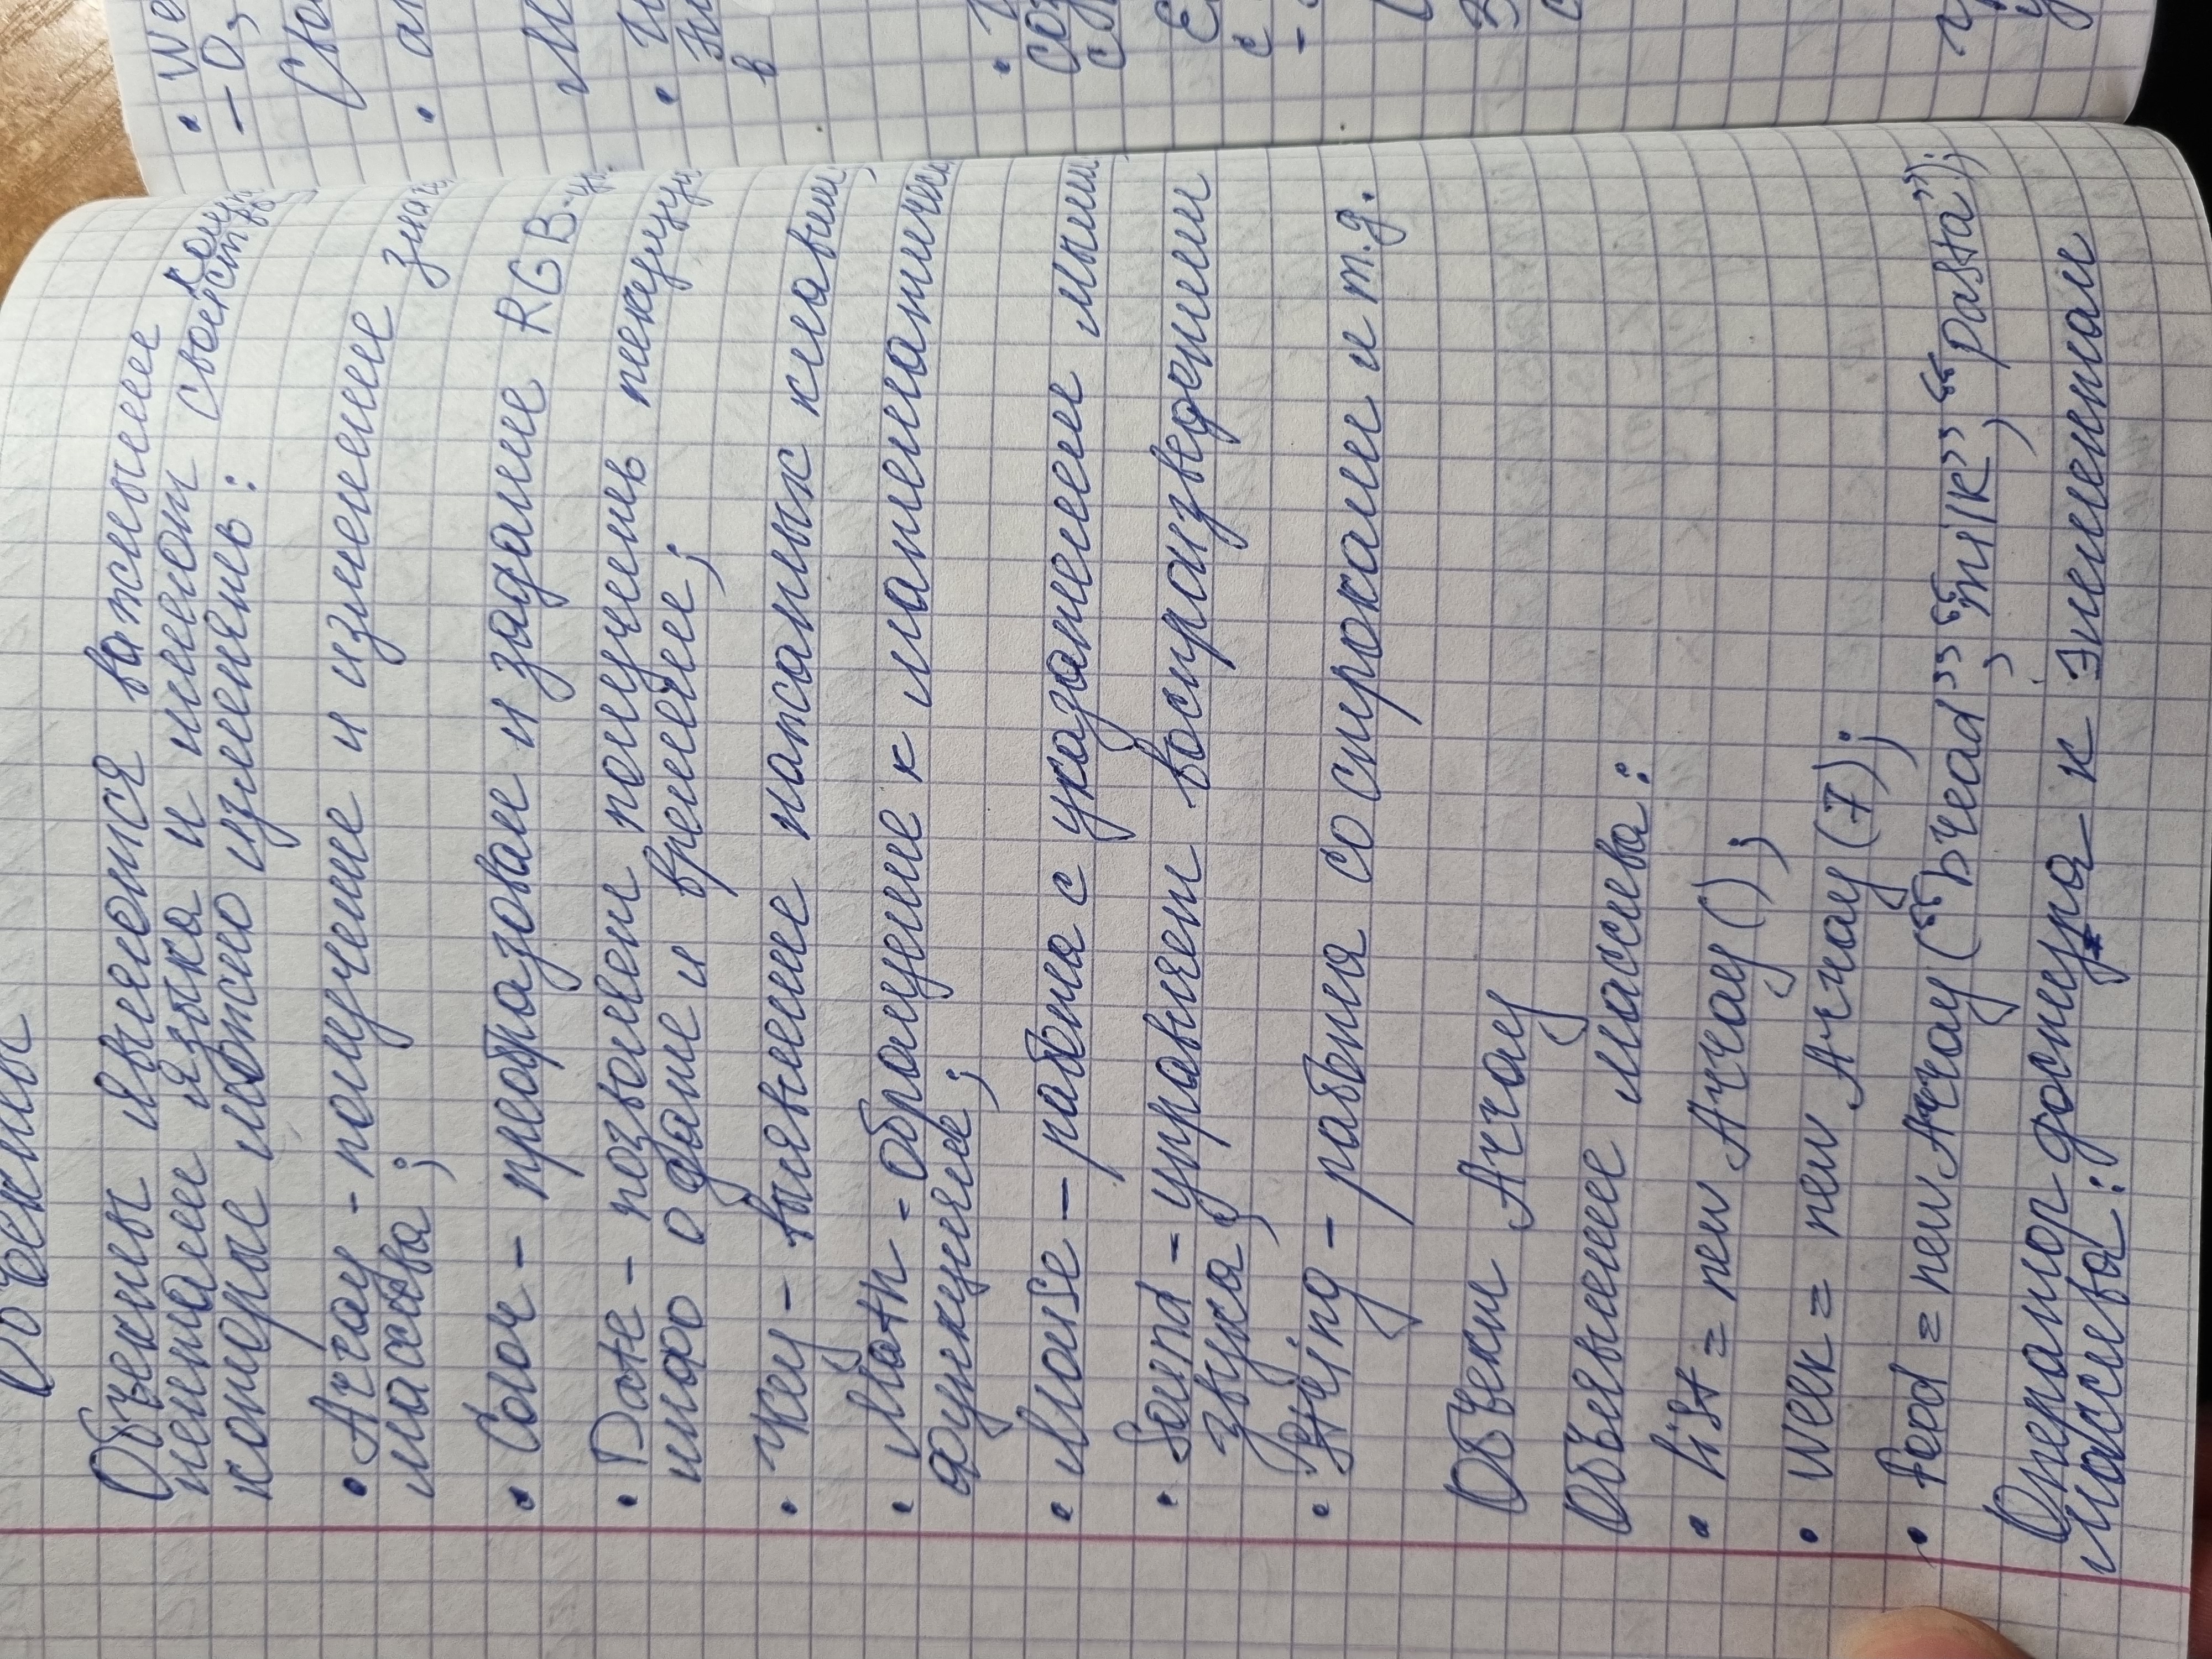 Объекты
Объекты являются важными компо
нентами языка и имеют свойства,
которые можно изменять:
• Array - получение и изменение знач
массива;
• Color - преобразован и задание RGB-
• Date - позволяет получить текущую
инфо о дате и времени;
• Key - выявление нажатых клавиш;
• Math - обращение к математическ
функциям;
• Mouse - работа с указателем мыши;
• Sound - управляет воспроизведением
звука;
• String - работа со строками и т.д.
Объект Array
Объявление массива:
• list = new Array();
• week = new Array(7);
• food = new Array(“bread”, “milk”, “pasta”);
Оператор доступа к элементам
массива:
• We
- 0,
• 
в
с